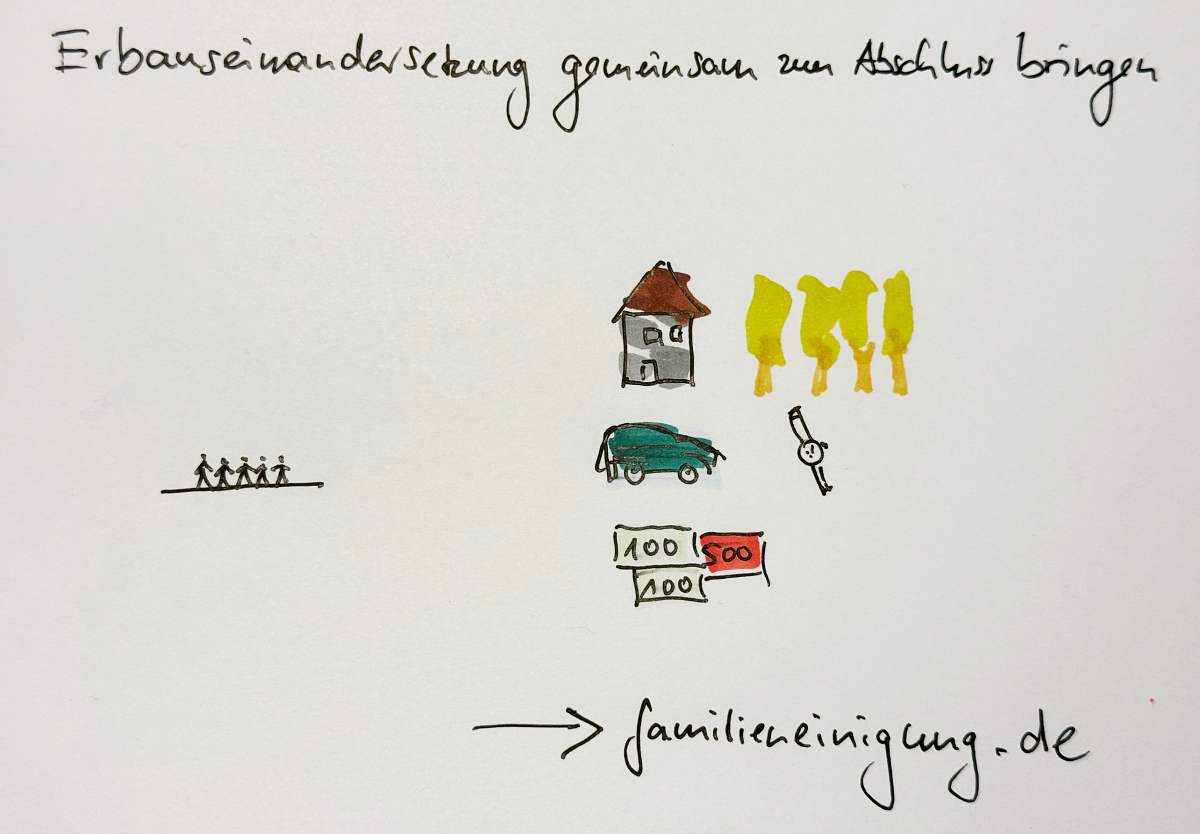 Erbauseinandersetzung gemeinsam zum Abschluss bringen
100 500
100
familieneinigung.de